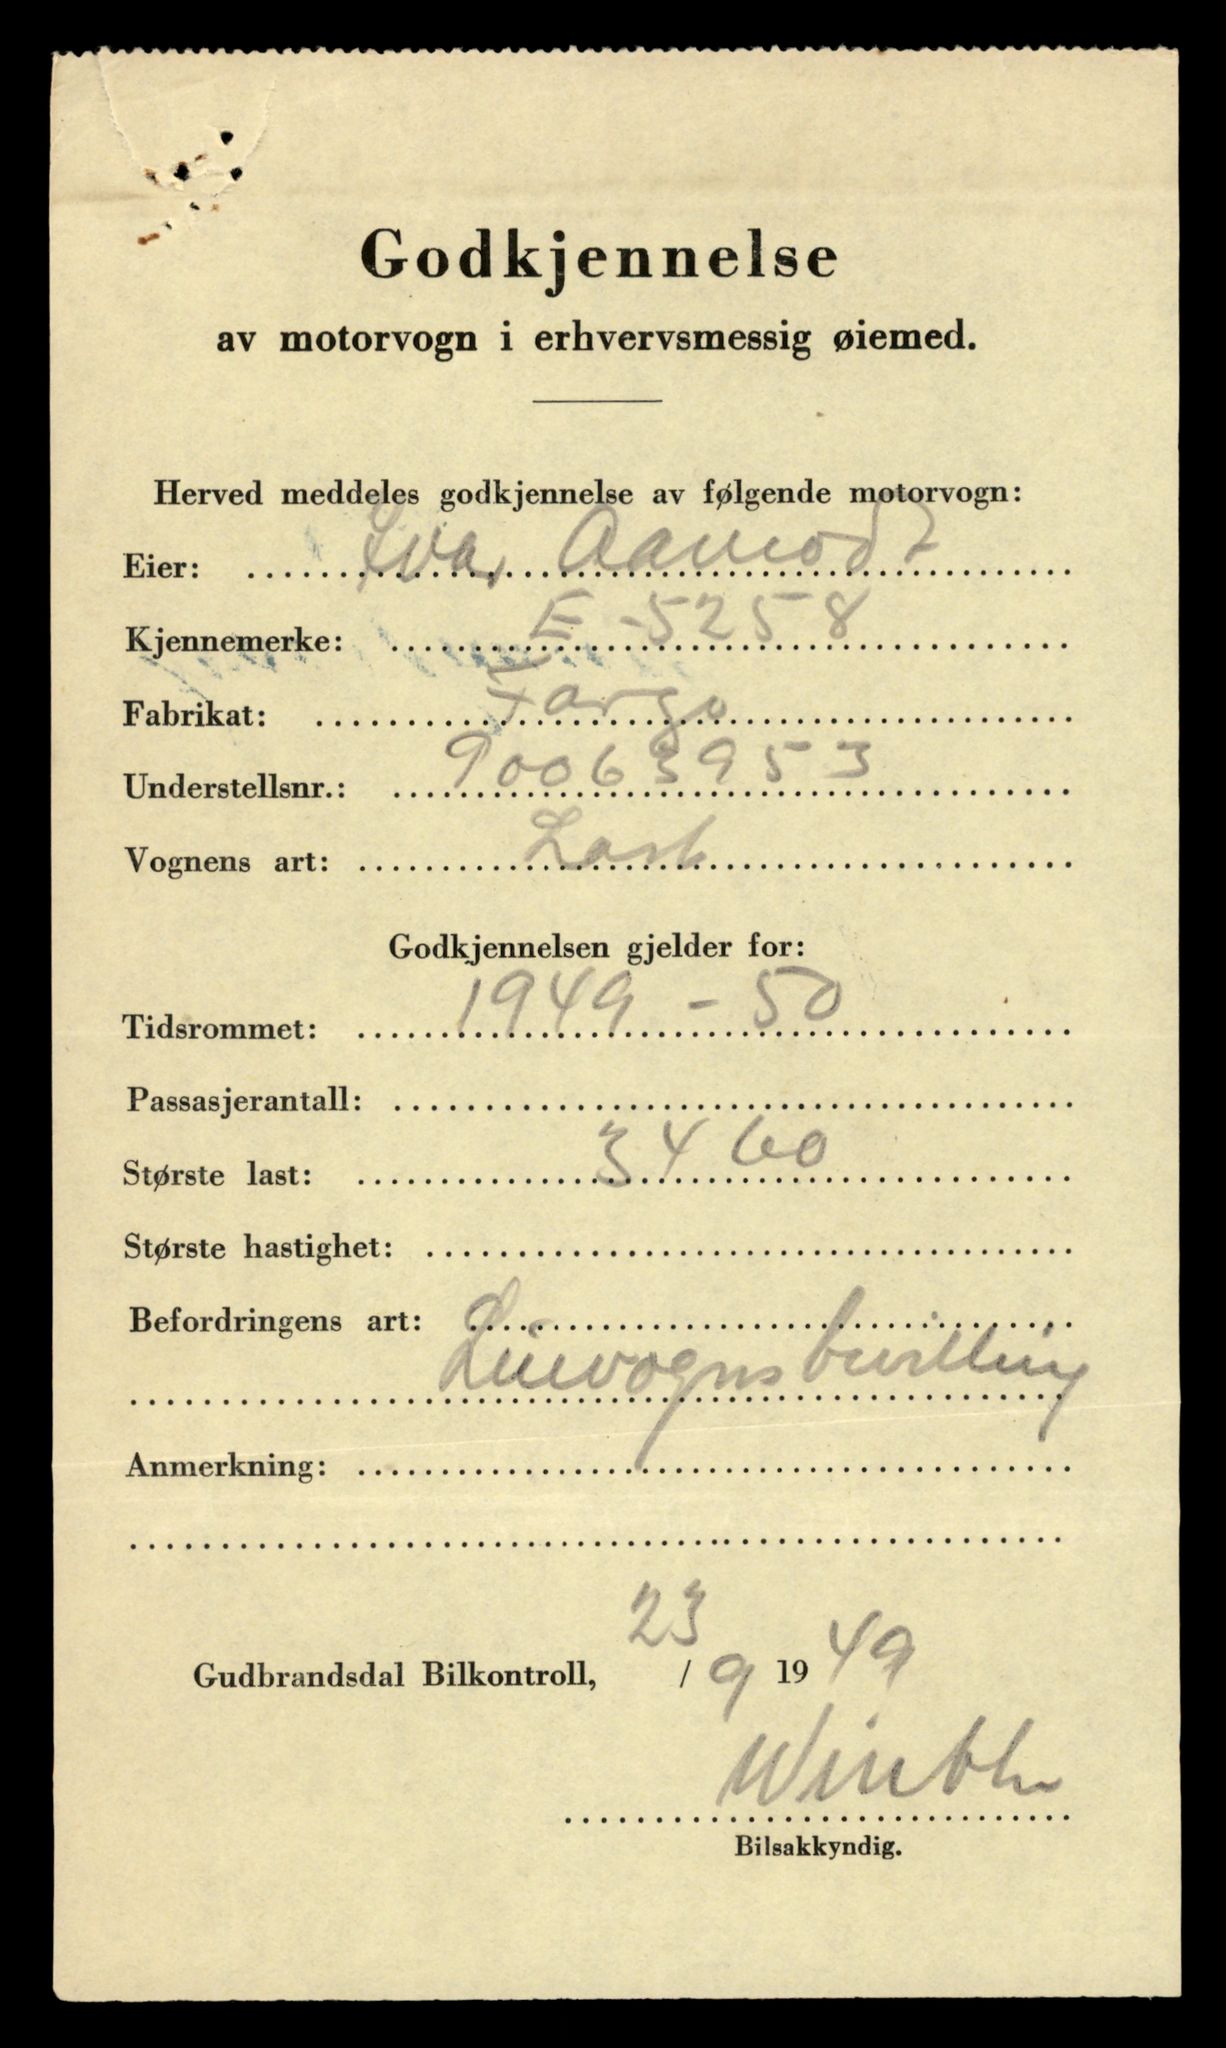 Godkjennelse
av motorvogn i erhvervsmessig øiemed.
Herved meddeles godkjennelse av følgende motorvogn:
Eier: Ivar Aamodt
Kjennemerke: E-5258
Fabrikat: Fargo
Understellsnr.: 90063953
Vognens art: Last
Godkjennelsen gjelder for:
Tidsrommet: 1949-50
Passasjerantall:
Største last: 3460
Største hastighet:
Befordringens art:
Leievognsbevilling
Anmerkning:
Gudbrandsdal Bilkontroll, 23/9 1949
Bilsakkyndig.